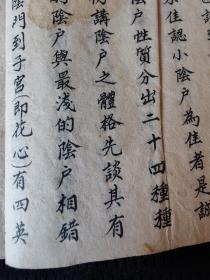 京佳認小陰户為佳者是訪
陰户性質分出二十四種種
物講陰户之體格先談其有
的陰户與最淺的陰户相錯
陰門到子宫(即花心)有四英